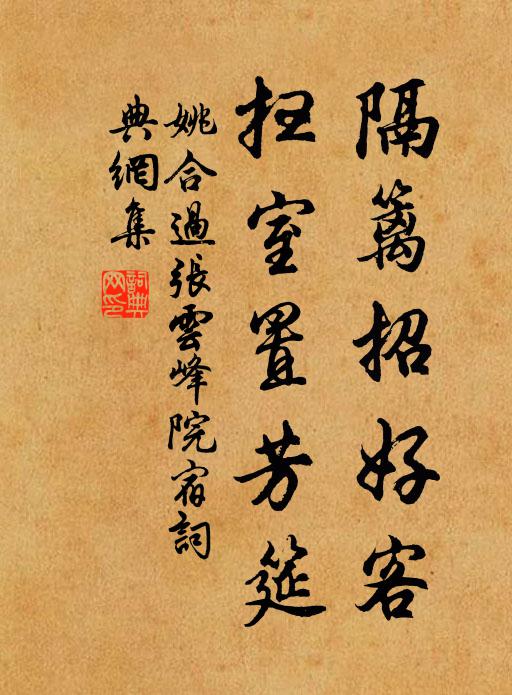 隔篱招好客
扫室置芳筵
姚合過張雲峰院宿詞
典網集
詞典网印